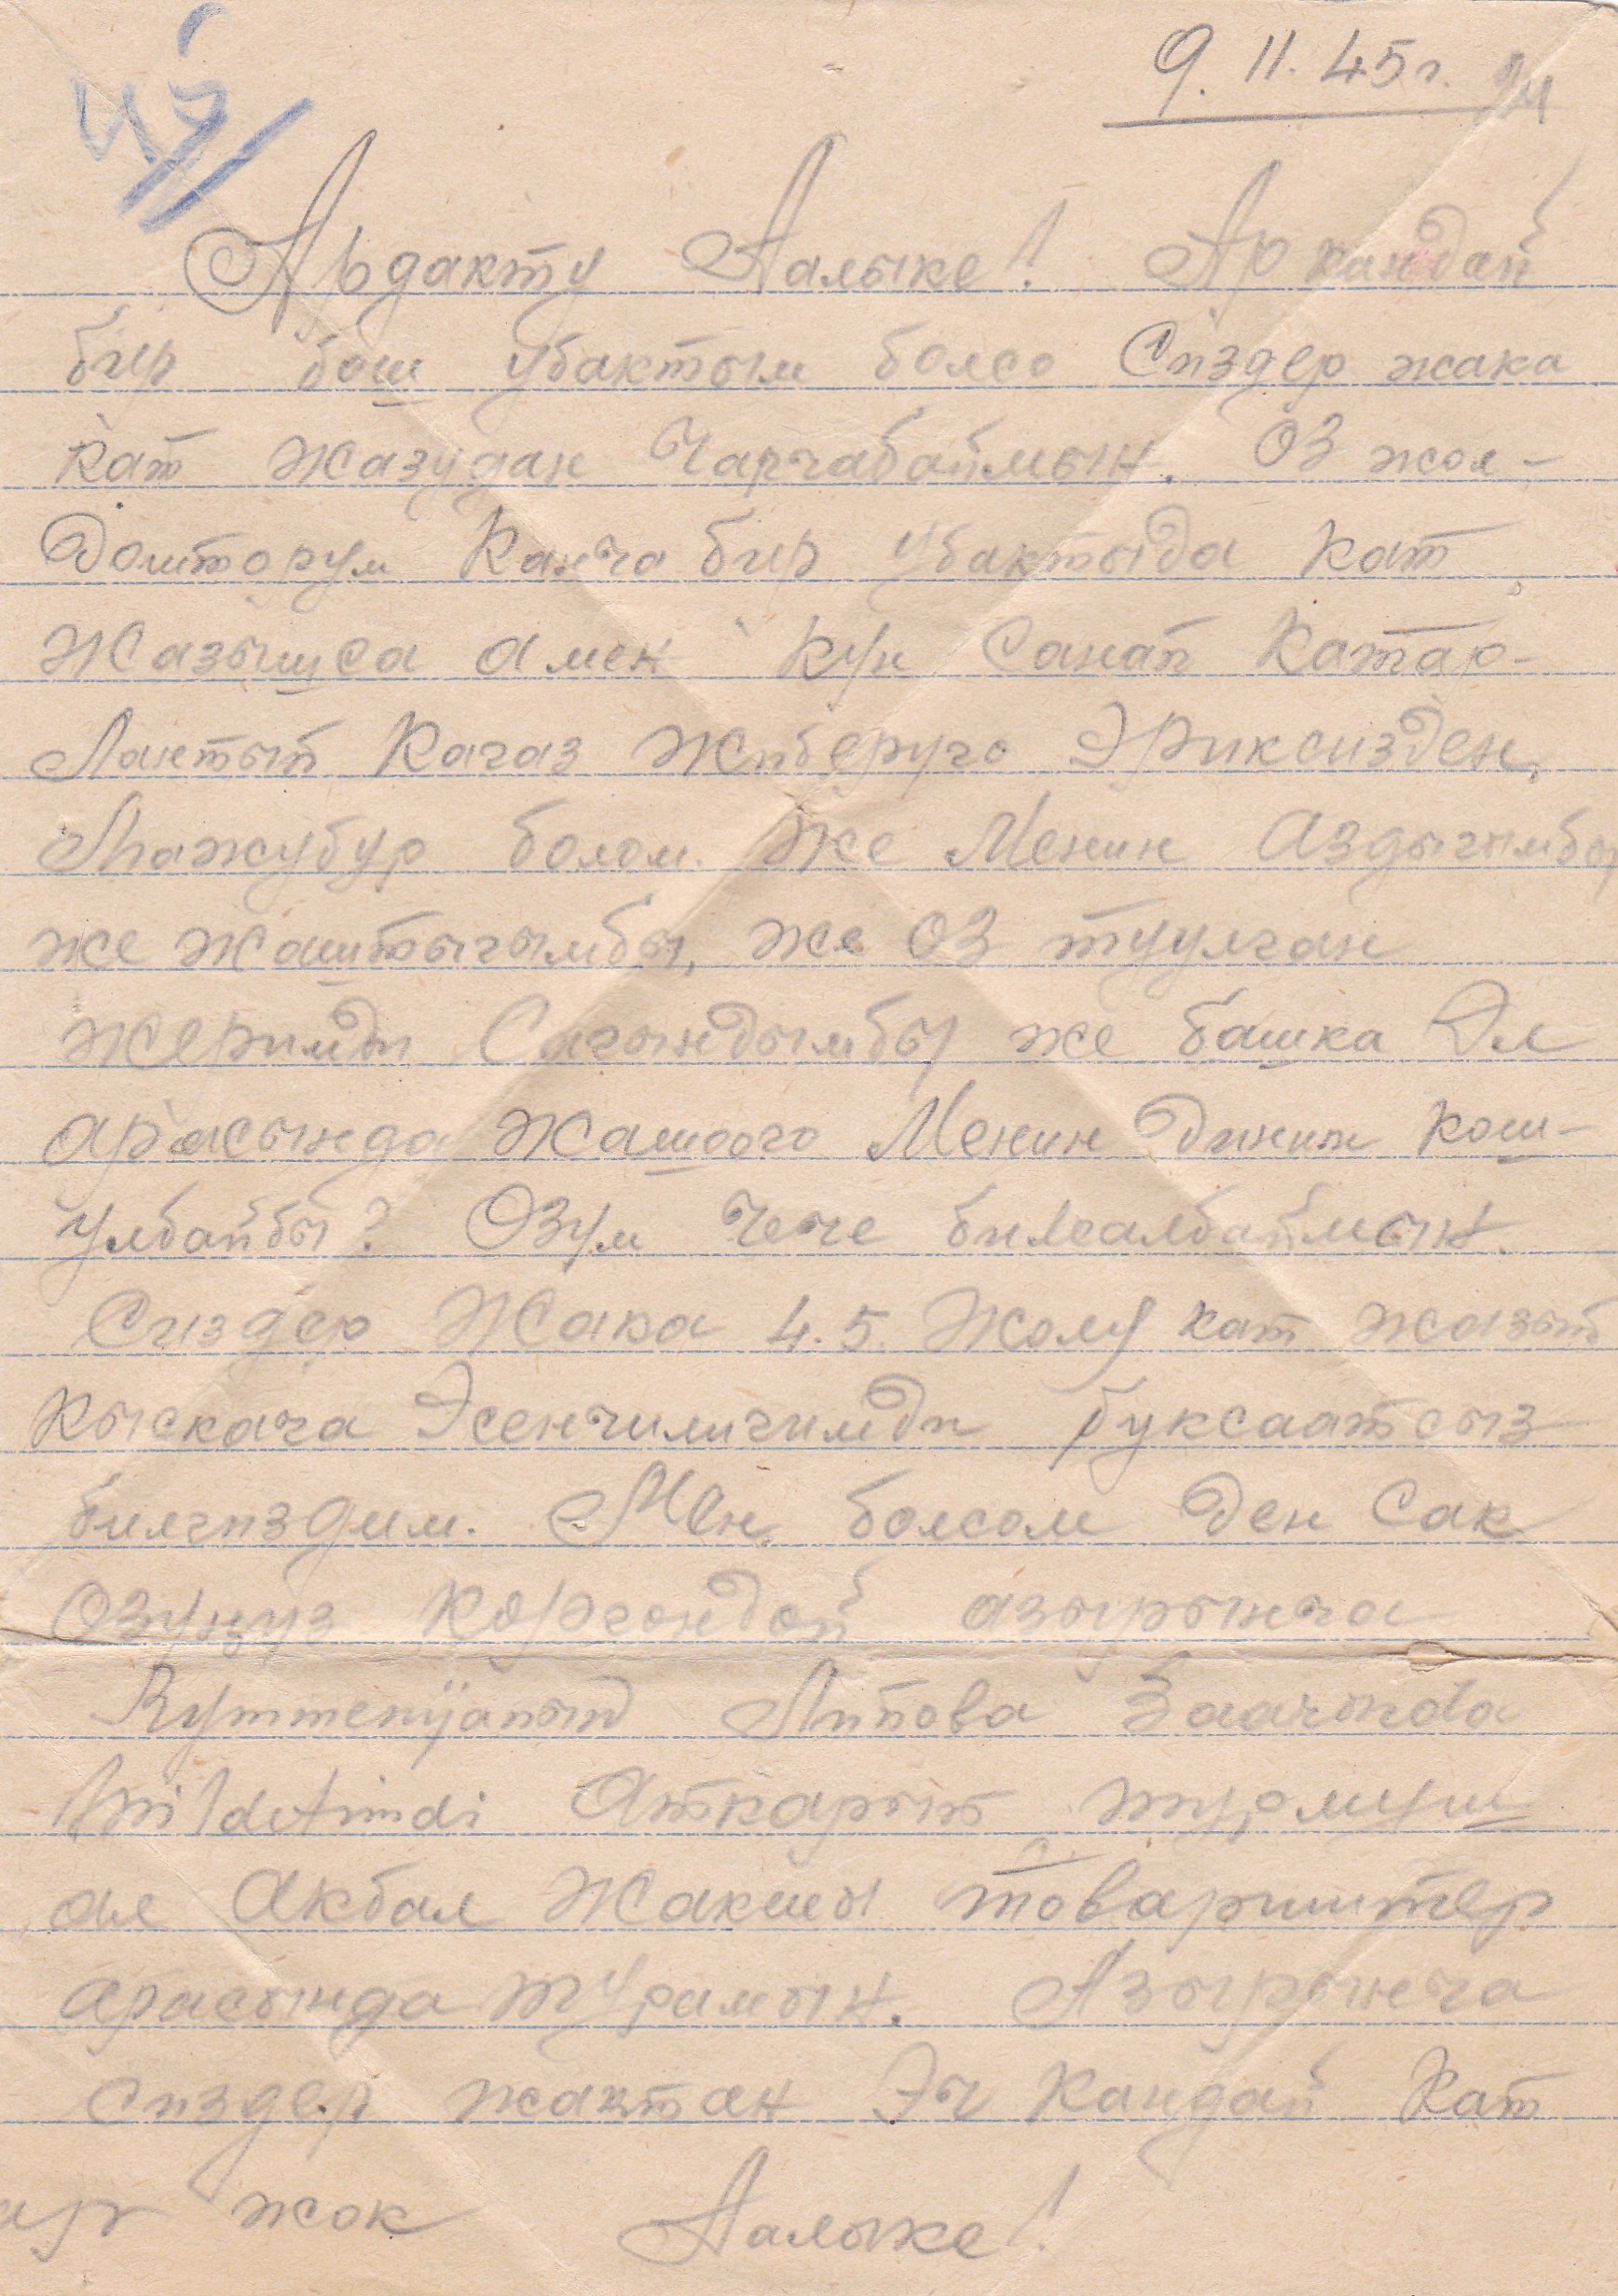 9. II. 45 г.
Ардакту Аалыке! Ар кандай
бир бош убактым болсо Сиздер жака
кат жазудан Чарчабаймын. ОЗ жол-
доштарум Канча бир убактыда кат
Жазышса а мен кун Санап Катар-
Лантып Кагаз Жиберуго Эриксизден,
Мажубур болом. Же Менин Аздыгымбы
же Жаштыгымбы, же ОЗ туулган
жеримди Сагындымбы же башка Эл
арасында Жашоого Менин Диним Кош-
улбайбы? ОЗум Чече билеалбаймын.
Сиздер Жака 4.5. Жолу кат жазып
Кыскача Эсенчилигимди буксаатсыз
билгиздим. Мен болсом Ден Сак
ОЗуңуз Коргондой азырынча
Липова
mildetimdi Аткарып турмуш
ал Акбал Жакшы товариштер
арасында турамын. Азырынча
Сиздер жактан Эч Кандай Кат
жок Аалыке!